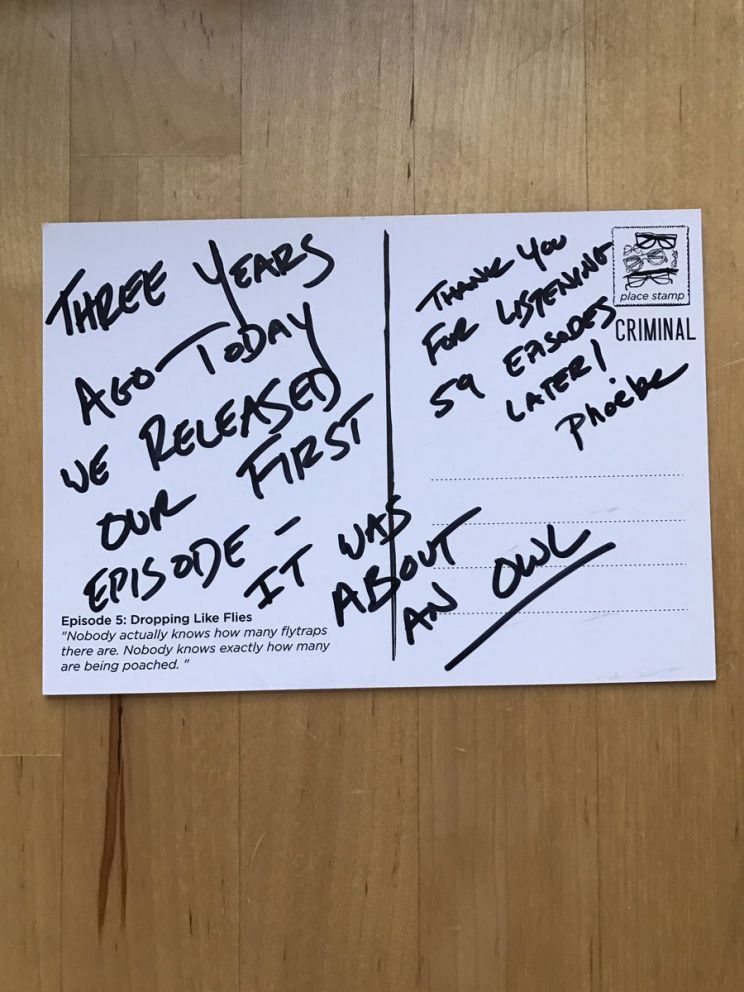 THREE YEARS
AGO TODAY
WE RELEASED
OUR FIRST
EPISODE -
IT WAS
ABOUT
AN OWL
Episode 5: Dropping Like Flies
"Nobody actually knows how many flytraps
there are. Nobody knows exactly how many
are being poached. "
THANK YOU
FOR LISTENING
59 EPISODES
LATER!
Phoebe
place stamp
CRIMINAL